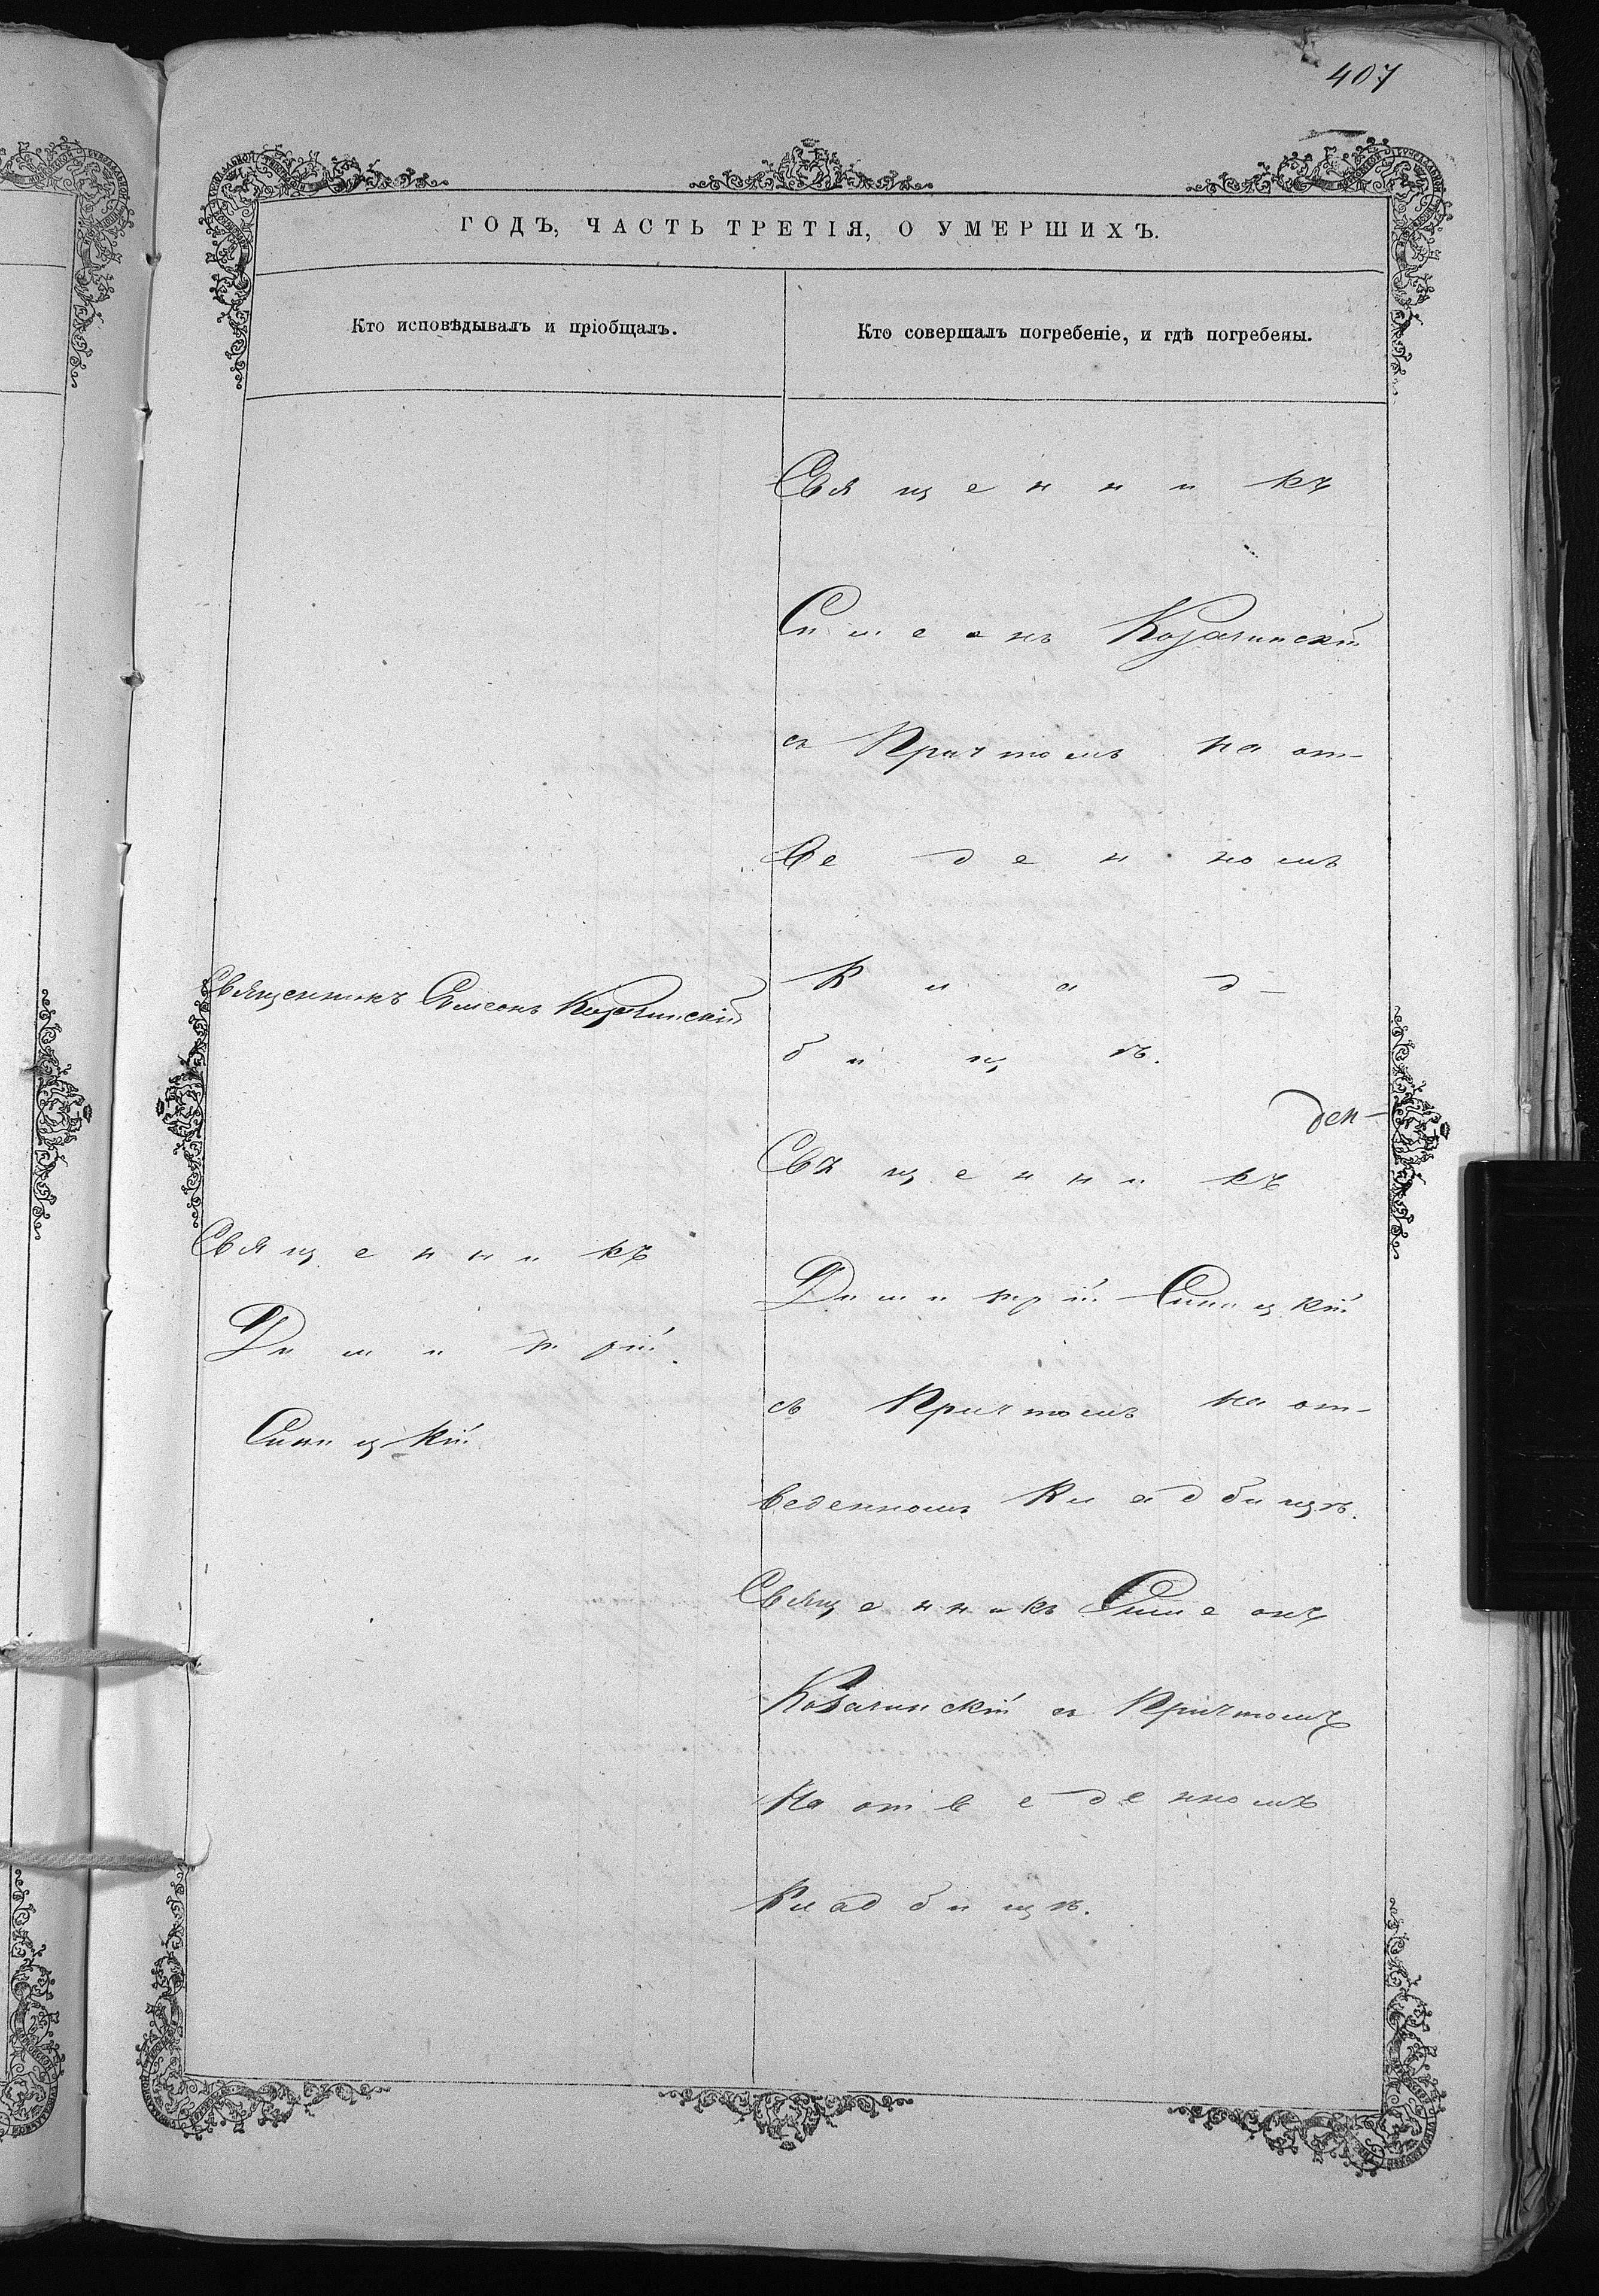 407
ГОДЪ, ЧАСТЬ ТРЕТІЯ, О УМЕРШИХЪ.
Кто исповѣдывалъ и пріобщалъ.
Священникъ Симеонъ Козачинскій
Священникъ
Димитрій
Синицкій
Кто совершалъ погребеніе, и гдѣ погребены.
Священникъ
Симеонъ Козачинскій
съ Причтомъ на от-
веденномъ
Клад-
бищѣ.
Священникъ
Димитрій Синицкій
съ Причтомъ на от-
веденномъ Кладбищѣ.
Священникъ Симеонъ
Козачинскій съ Причтомъ
на отведенномъ
Кладбищѣ.